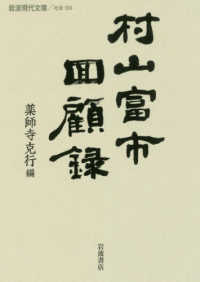 岩波現代文庫／社会
村山富市
回顧録
薬師寺克行 編
岩波書店